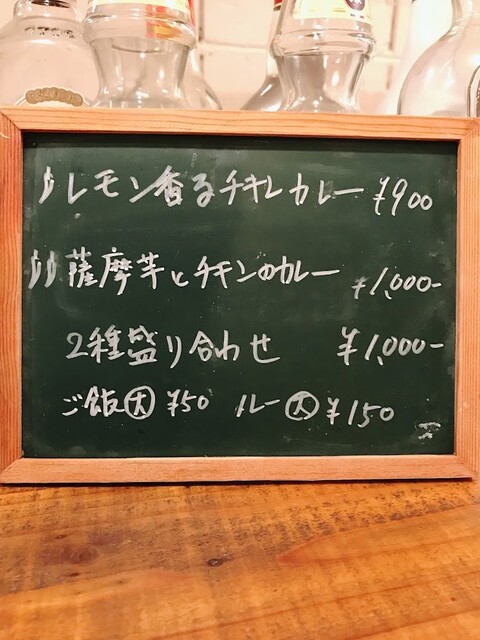 レモン香るチキンカレー ¥900
薩摩芋とチキンのカレー ¥1,000-
2種盛り合わせ ¥1,000-
ご飯大 ¥50 ルー大 ¥150